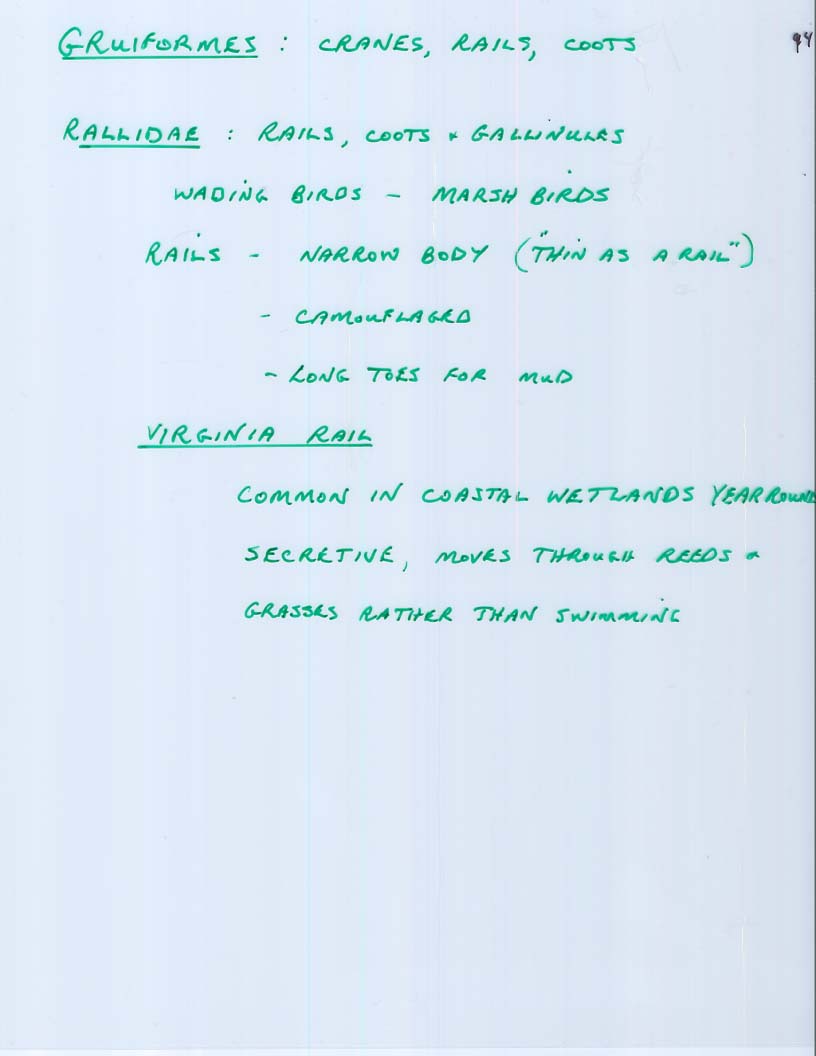 GRUIFORMES : CRANES, RAILS, COOTS
94
RALLIDAE : RAILS, COOTS & GALLINULES
WADING BIRDS - MARSH BIRDS
RAILS - NARROW BODY ("THIN AS A RAIL")
- CAMOUFLAGED
- LONG TOES FOR MUD
VIRGINIA RAIL
COMMON IN COASTAL WETLANDS YEARROUND
SECRETIVE, MOVES THROUGH REEDS &
GRASSES RATHER THAN SWIMMING